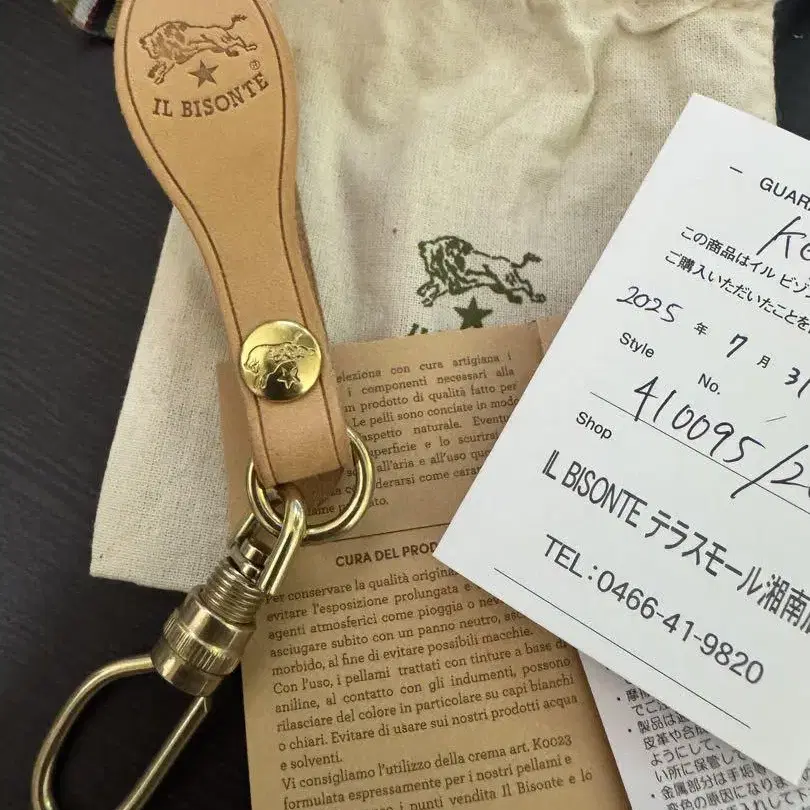 IL BISONTE®
IL
eleziona con cura artigiana i
i componenti necessari alla
un prodotto di qualità fatto per
Le pelli sono conciate in modo
aspetto naturale.
superficie e lo scurirsi
all'aria e all'uso
considerarsi come
CURA DEL
Per conservare la qualità
evitare l'esposizione prolungata e
agenti atmosferici come pioggia o
asciugare subito con un panno neutro,
morbido, al fine di evitare possibili macchie.
Con l'uso, i pellami trattati con tinture a base di
aniline, al contatto con gli indumenti, possono
rilasciare del colore in particolare su capi bianchi
o chiari. Evitare di usare sui nostri prodotti acqua
e solventi.
Vi consigliamo l'utilizzo della crema art. K0023
formulata espressamente per i nostri pellami e
i punti vendita Il Bisonte e lo
この商品はイル ビゾ
ご購入いただいたことを
2025 年 7 月 31
Style No.
410095/2
Shop
IL BISONTE テラスモール湘南
TEL:0466-41-9820
でご
・製品は
皮革や合
ようにして、
い所に保管し
・金属部分は手垢
の原因になりま